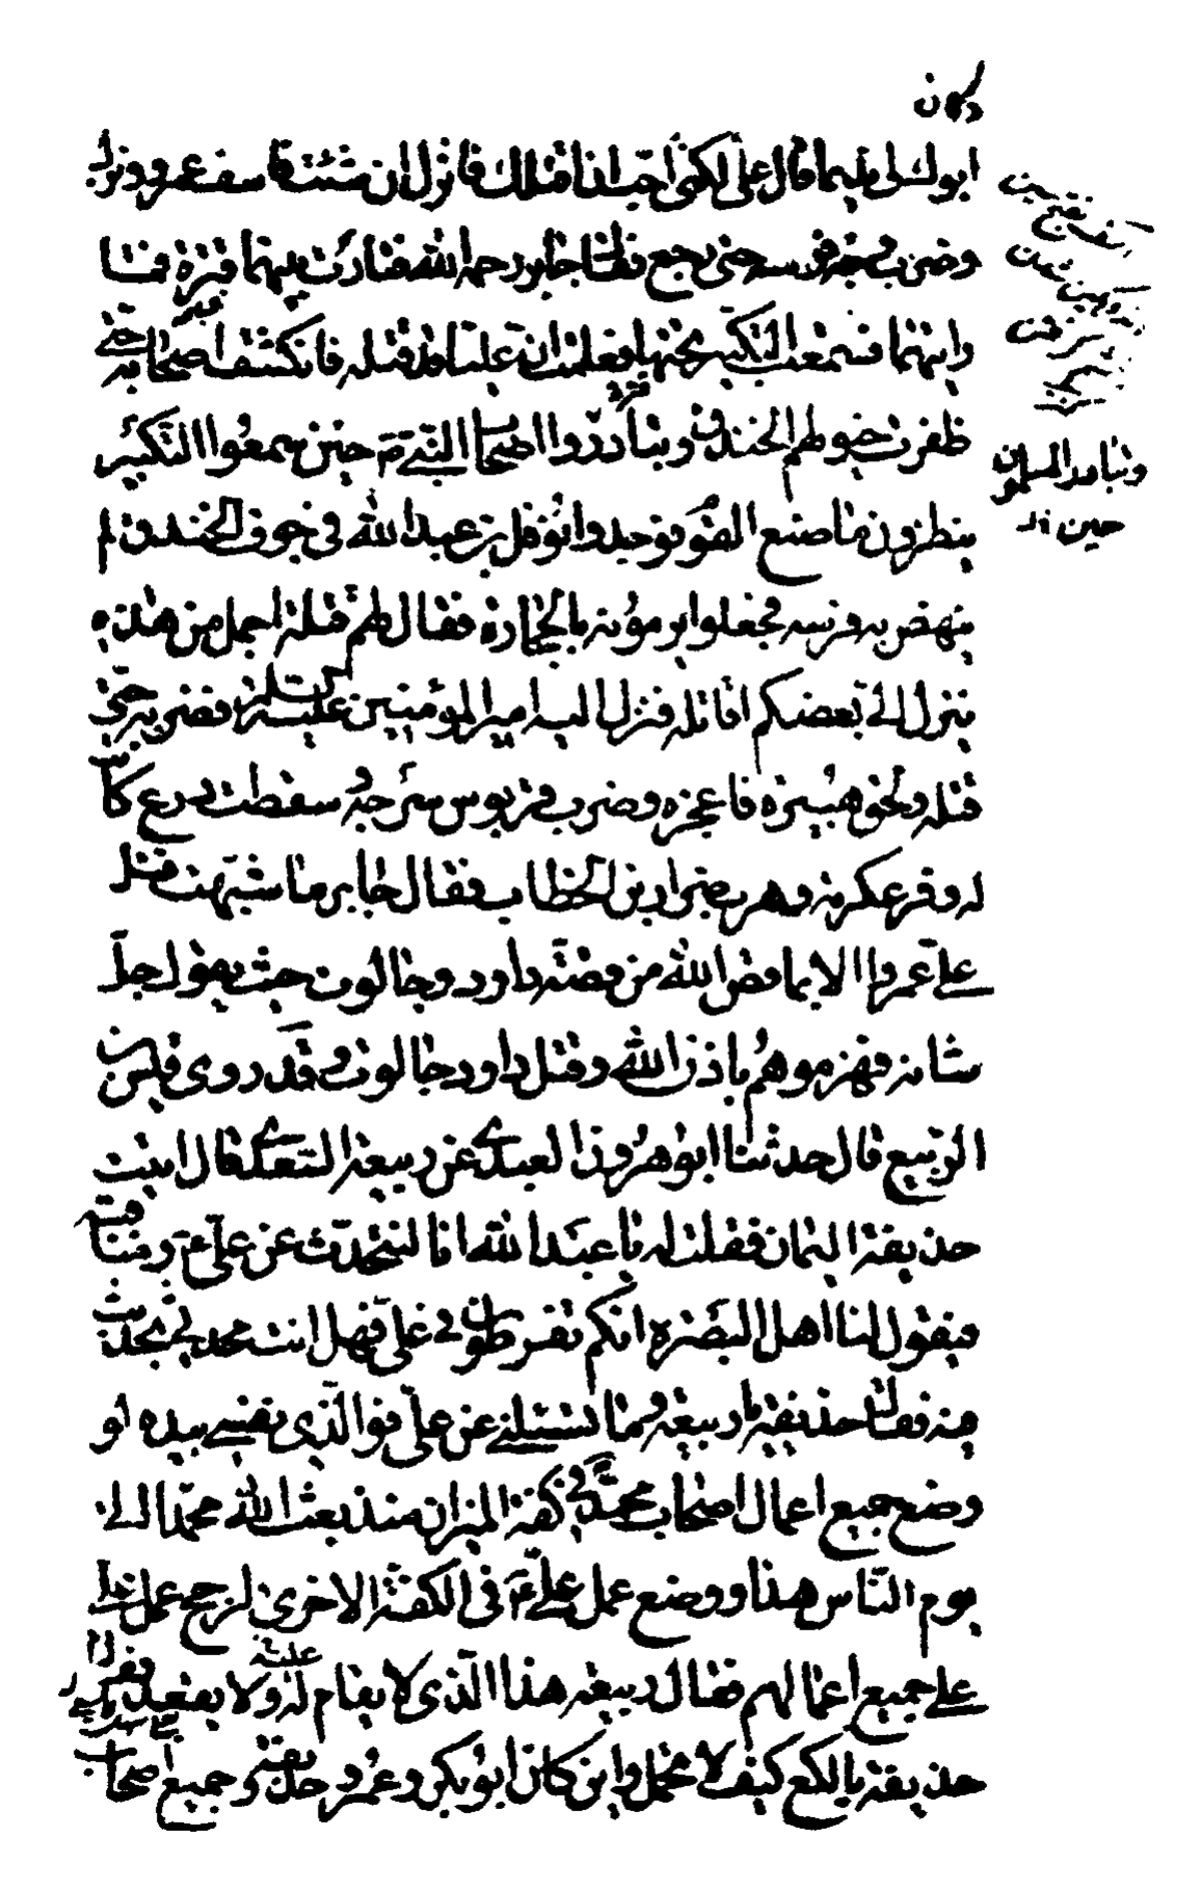 وكان
ابوك لي نديما قال علي لكني احب ان اقتلك فانزل ان شئت فاسف عمرو ونزل
وضرب وجه فرسه حتى رجع فقال جابر رحمه الله فثارت بينهما قترة فما
رايتهما فسمعت التكبير تحتها فعلمت ان عليا قد قتله فانكشف اصحابه حتى
طفرت خيولهم الخندق وتبادروا اصحاب النبي حين سمعوا التكبير
ينظرون ما صنع القوم فوجدوا نوفل بن عبد الله في جوف الخندق لم
ينهض به فرسه فجعلوا يرمونه بالحجارة فقال لهم قتلة اجمل من هذه
ينزل الي بعضكم اقاتله فنزل اليه امير المؤمنين عليه السلم فضربه حتى
قتله ولحق هبيرة فاعجزه وضرب قربوس سرجه وسقطت درع كانت
له وفر عكرمة وهرب ضرار بن الخطاب فقال جابر ما شبهت قتل
علي عمروا الا بما قص الله من قصة داود وجالوت حيث يقول جل
شانه فهزموهم باذن الله وقتل داود جالوت وقد روى قيس بن
الربيع قال حدثنا ابو هرون العبدي عن ربيعة السعدي قال اتيت
حذيفة اليمان فقلت له يا عبد الله انا لنتحدث عن علي ع ومناقبه
فيقول لنا اهل البصرة انكم تفرطون في علي فهل انت محدثي بحديث
فيه فقال حذيفة يا ربيعة وما تسئلني عن علي فوالذي نفسي بيده لو
وضع جميع اعمال اصحاب محمد في كفة الميزان منذ بعث الله محمدا الى
يوم الناس هذا ووضع عمل علي ع في الكفة الاخرى لرجح عمل علي
على جميع اعمالهم فقال ربيعة هذا الذي لا يقام له ولا يقعد فقال
حذيفة يا لكع كيف لا يحمل واين كان ابو بكر وعمر وحذيفة وجميع اصحاب
وتبادر المسلمون
حين